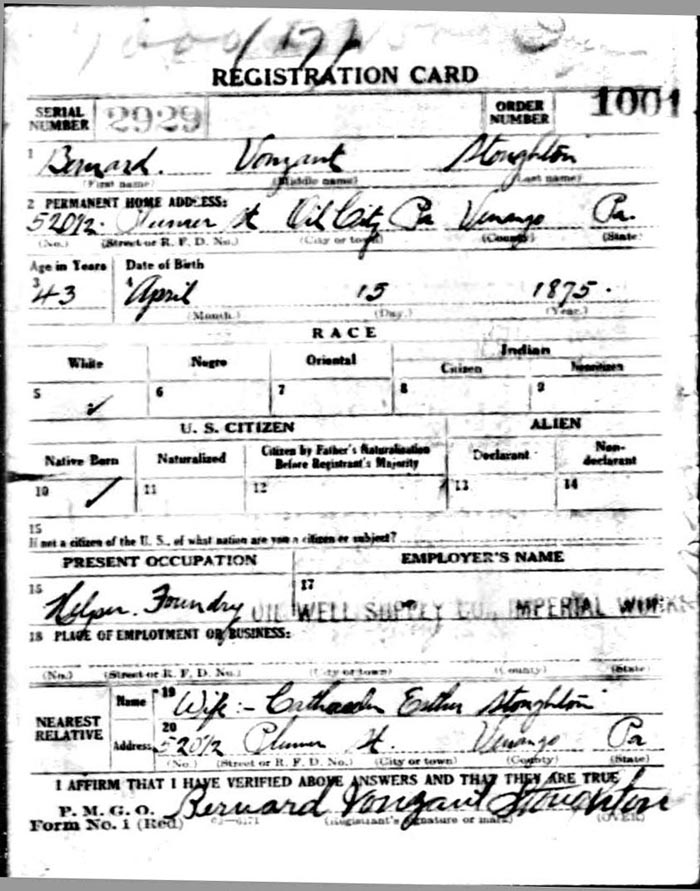 REGISTRATION CARD
SERIAL NUMBER 2929 ORDER NUMBER 1001
1 Bernard. Vongant Stoughton
(First name) (Middle name) (Last name)
2 PERMANENT HOME ADDRESS:
520½ Plumer St Oil City Pa Venango Pa.
(No.) (Street or R. F. D. No.) (City or town) (County) (State)
Age in Years Date of Birth
3 43 4 April 15 1875.
(Month.) (Day.) (Year.)
RACE
White Negro Oriental Indian
Citizen Noncitizen
5 ✓ 6 7 8 9
U. S. CITIZEN ALIEN
Native Born Naturalized Citizen by Father's Naturalization Before Registrant's Majority Declarant Non-declarant
10 ✓ 11 12 13 14
15
If not a citizen of the U. S., of what nation are you a citizen or subject?
PRESENT OCCUPATION EMPLOYER'S NAME
16 Helper. Foundry 17 OIL WELL SUPPLY CO., IMPERIAL WORKS
18 PLACE OF EMPLOYMENT OR BUSINESS:
(No.) (Street or R. F. D. No.) (City or town) (County) (State)
NEAREST RELATIVE
Name 19 Wife:- Esther Stoughton
Address 20 520½ Plumer St. Venango Pa
(No.) (Street or R. F. D. No.) (City or town) (County) (State)
I AFFIRM THAT I HAVE VERIFIED ABOVE ANSWERS AND THAT THEY ARE TRUE
P. M. G. O. Bernard Vongant Stoughton
Form No. 1 (Red) 03—6171 (Registrant's signature or mark) (OVER)